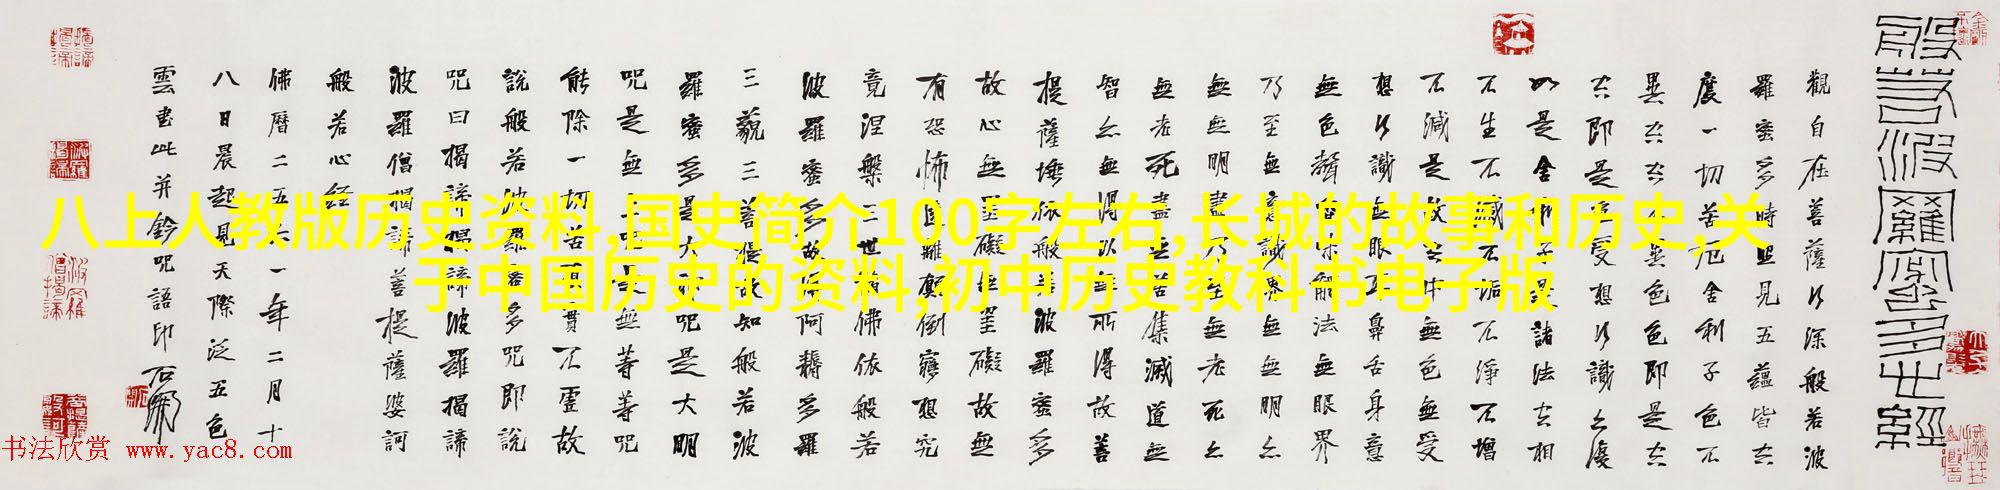 般若波羅蜜多心經
觀自在菩薩行深般若波
羅蜜多時照見五蘊皆空
度一切苦厄舍利子色不
異空空不異色色即是空
空即是色受想行識亦復
如是舍利子是諸法空相
不生不滅不垢不淨不增
不減是故空中無色無受
想行識無眼耳鼻舌身意
無色聲香味觸法無眼界
乃至無意識界無無明亦
無無明盡乃至無老死亦
無老死盡無苦集滅道無
智亦無得以無所得故菩
提薩埵依般若波羅蜜多
故心無罣礙無罣礙故無
有恐怖遠離顛倒夢想究
竟涅槃三世諸佛依般若
波羅蜜多故得阿耨多羅
三藐三菩提故知般若波
羅蜜多是大神咒是大明
咒是無上咒是無等等咒
能除一切苦真實不虛故
說般若波羅蜜多咒即說
咒曰揭諦揭諦波羅揭諦
波羅僧揭諦菩提薩婆訶
般若心經
佛曆二五六一年二月十
八日晨起見天際泛五色
雲書此并鈐咒語印
八上人教版历史资料,国史简介100字左右,长城的故事和历史,关
于中国历史的资料,初中历史教科书电子版
书法欣赏 www.yac8.com